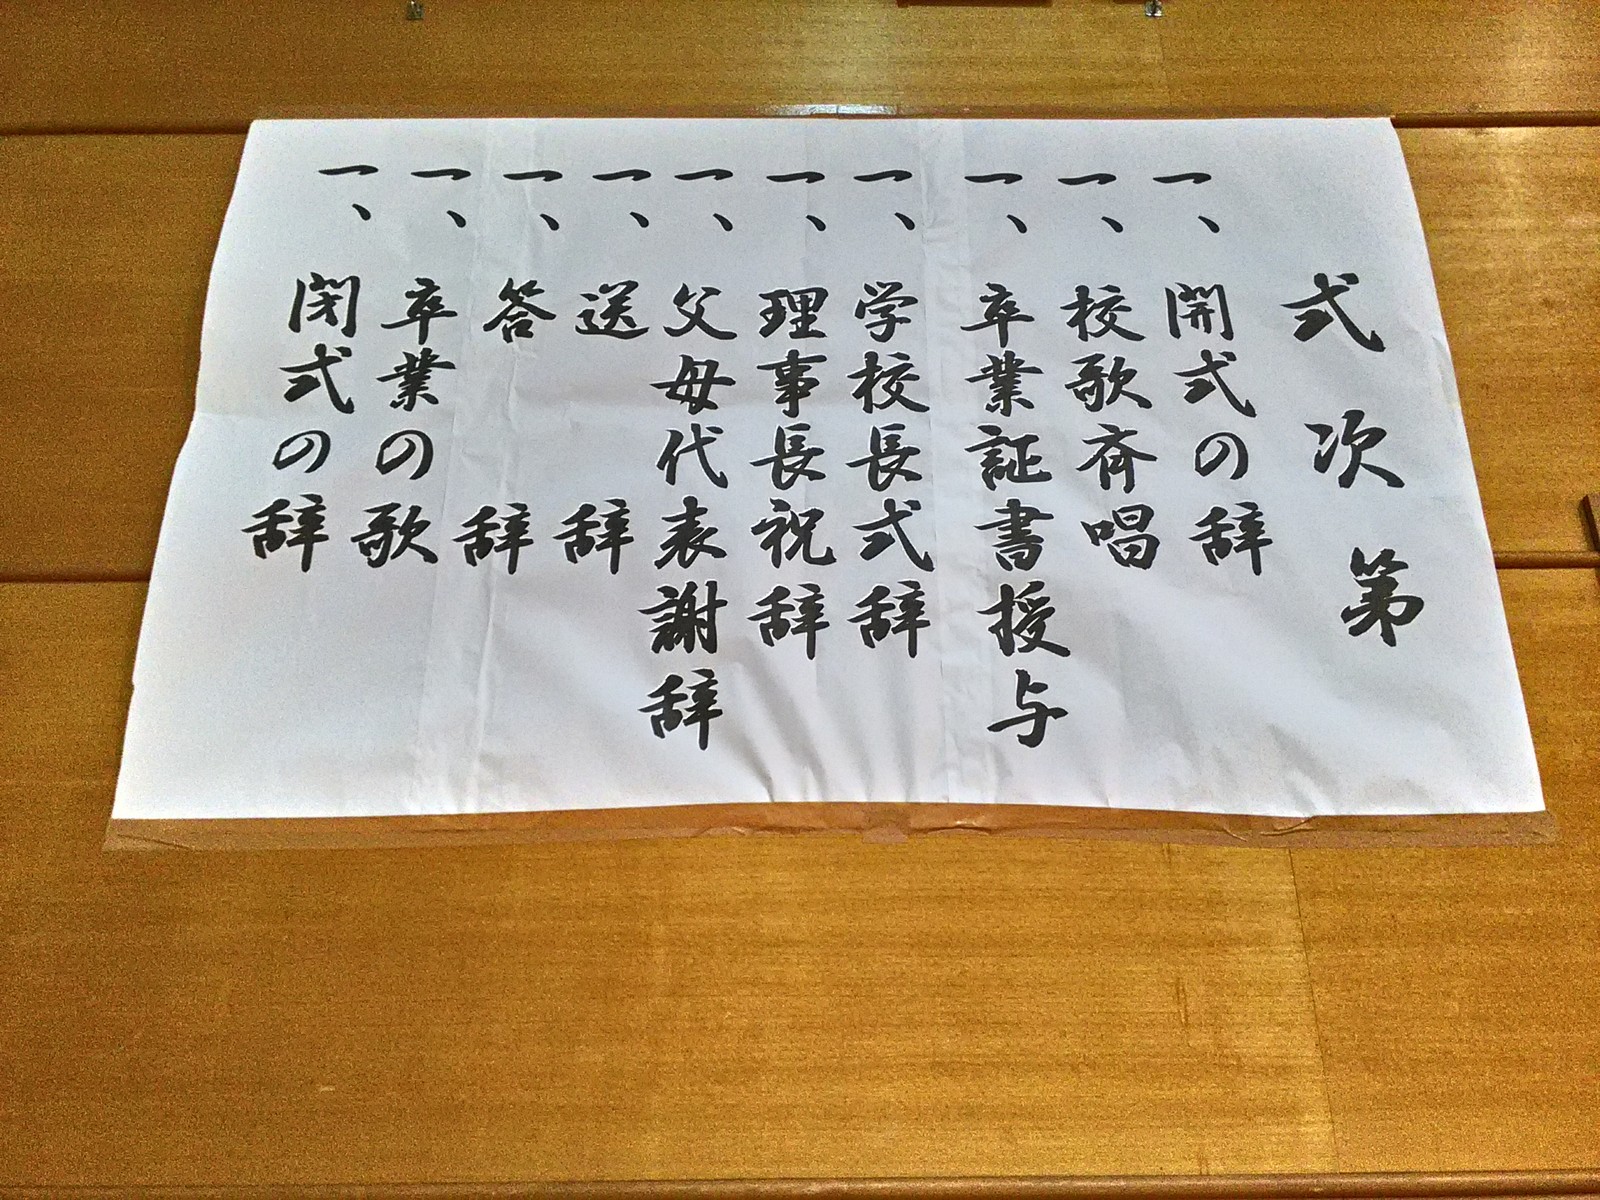 式次第
一、開式の辞
一、校歌斉唱
一、卒業証書授与
一、学校長式辞
一、理事長祝辞
一、父母代表謝辞
一、送辞
一、答辞
一、卒業の歌
一、閉式の辞